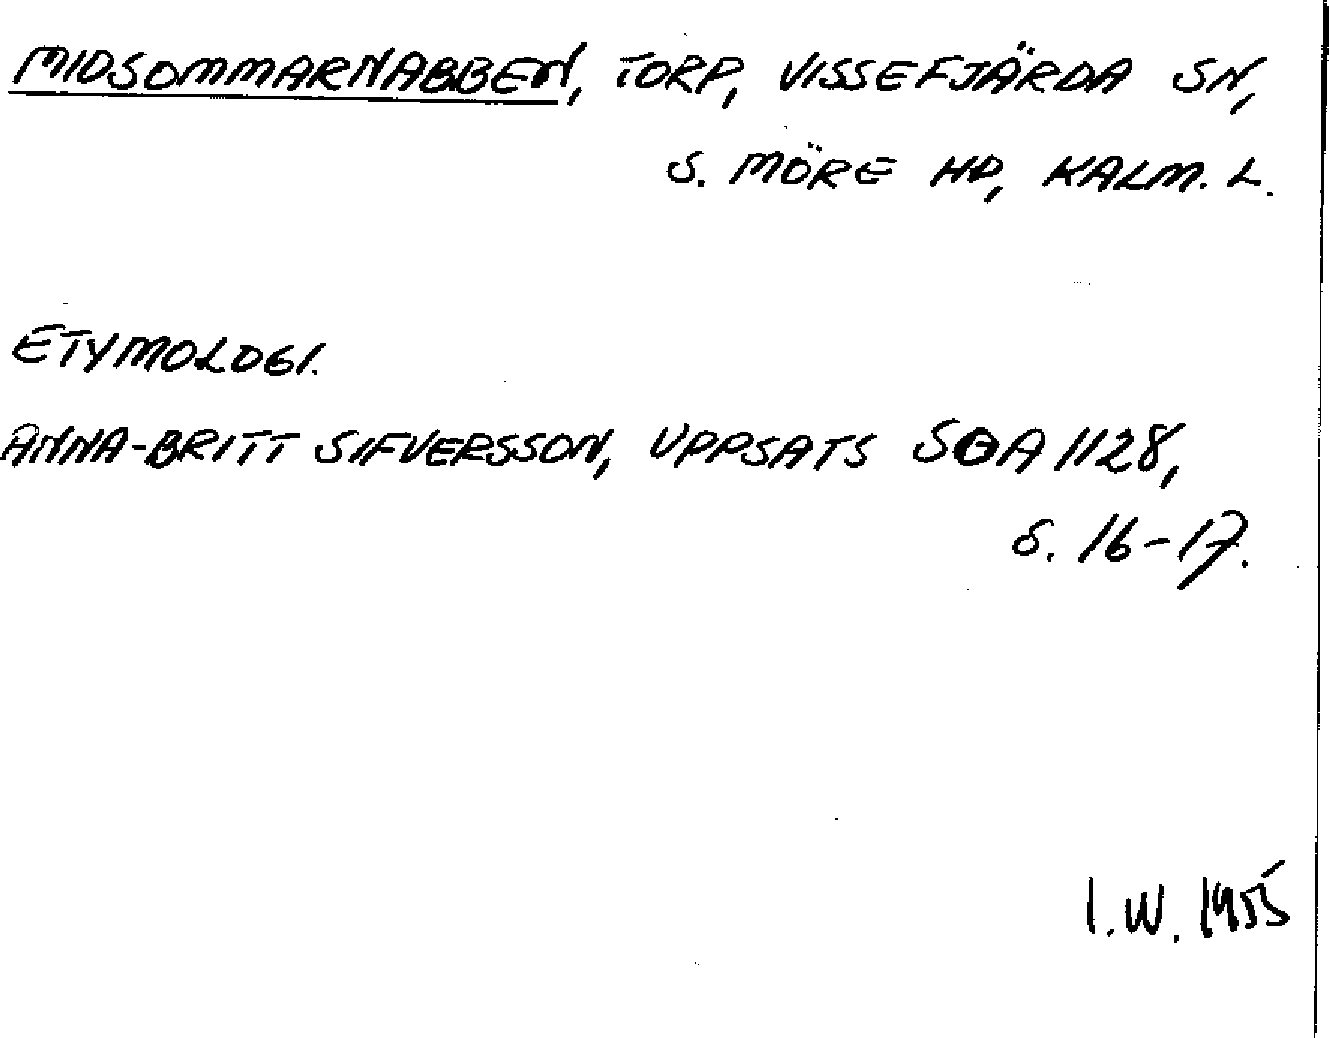 MIDSOMMARNABBEN, TORP, VISSEFJÄRDA SN,
S. MÖRE HD, KALM. L.
ETYMOLOGI.
ANNA-BRITT SIFVERSSON, UPPSATS SOA 1128,
S. 16-17.
I.W. 1955